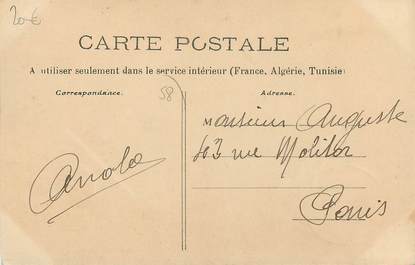 20€
CARTE POSTALE
A utiliser seulement dans le service intérieur (France, Algérie, Tunisie)
Correspondance.
58
Adresse.
Monsieur Auguste
rue Molitor
Paris